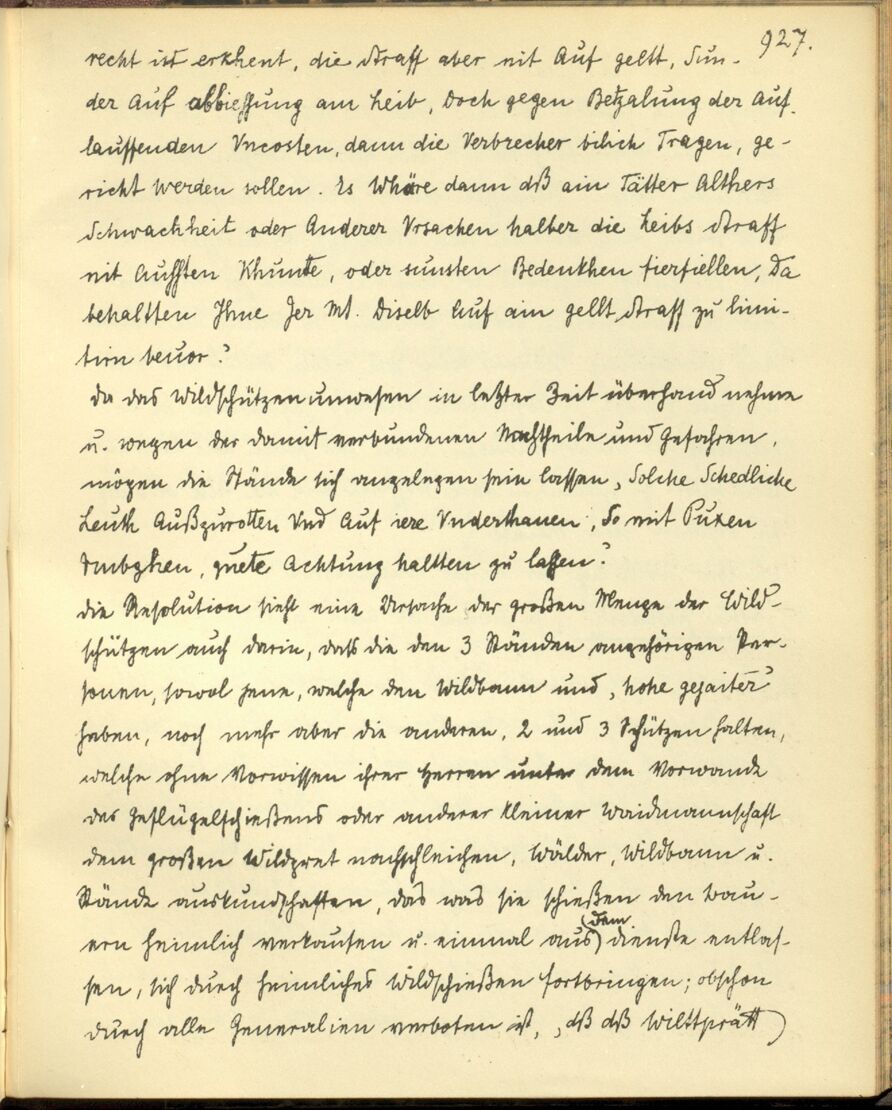 927.
recht ist erkhent, die straff aber nit Auf geltt, Sun-
der Auf abbiessung am Leib, doch gegen Betzalung der Auf-
lauffenden Vncosten, dann die Verbrecher bilich Tragen, ge-
richt werden sollen. Es Whäre dann dß ain Tätter Althers
Schwachheit oder Anderer Vrsachen halber die Leibs straff
nit Aufsten Khunte, oder sunsten Bedenkhen fierfiellen, Da
behaltten Ihne Jer Mt. Diselb Auf ain gellt straff zu limi-
tirn beuor?
da das Wildschützenunwesen in letzter Zeit überhand nehme
u. wegen der damit verbundenen Nachtheile und Gefahren,
mögen die Stände sich angelegen sein lassen, Solche Schedliche
Leuth Außzurotten Vnd Auf iere Vnderthanen, So mit Puxen
Vmbgehen, guete Achtung haltten zu lassen?
die Resolution sieht eine Ursache der großen Menge der Wild-
schützen auch darin, dass die den 3 Ständen angehörigen Per-
sonen, sowol jene, welche den Wildbann und, hohe gejaiter"
haben, noch mehr aber die anderen, 2 und 3 Schützen halten,
welche ohne Vorwissen ihrer Herren unter dem Vorwande
des Geflügelschießens oder anderer kleiner Waidmannschaft
dem großen Wildpret nachschleichen, Wälder, Wildbann u.
Stände auskundschaften, das was sie schießen den Bau-
ern heimlich verkaufen u. einmal aus (dem) dienste entlas-
sen, sich durch heimliches Wildschießen fortbringen; obschon
durch alle Generalien verboten ist, "dß dß Wiltprätt)